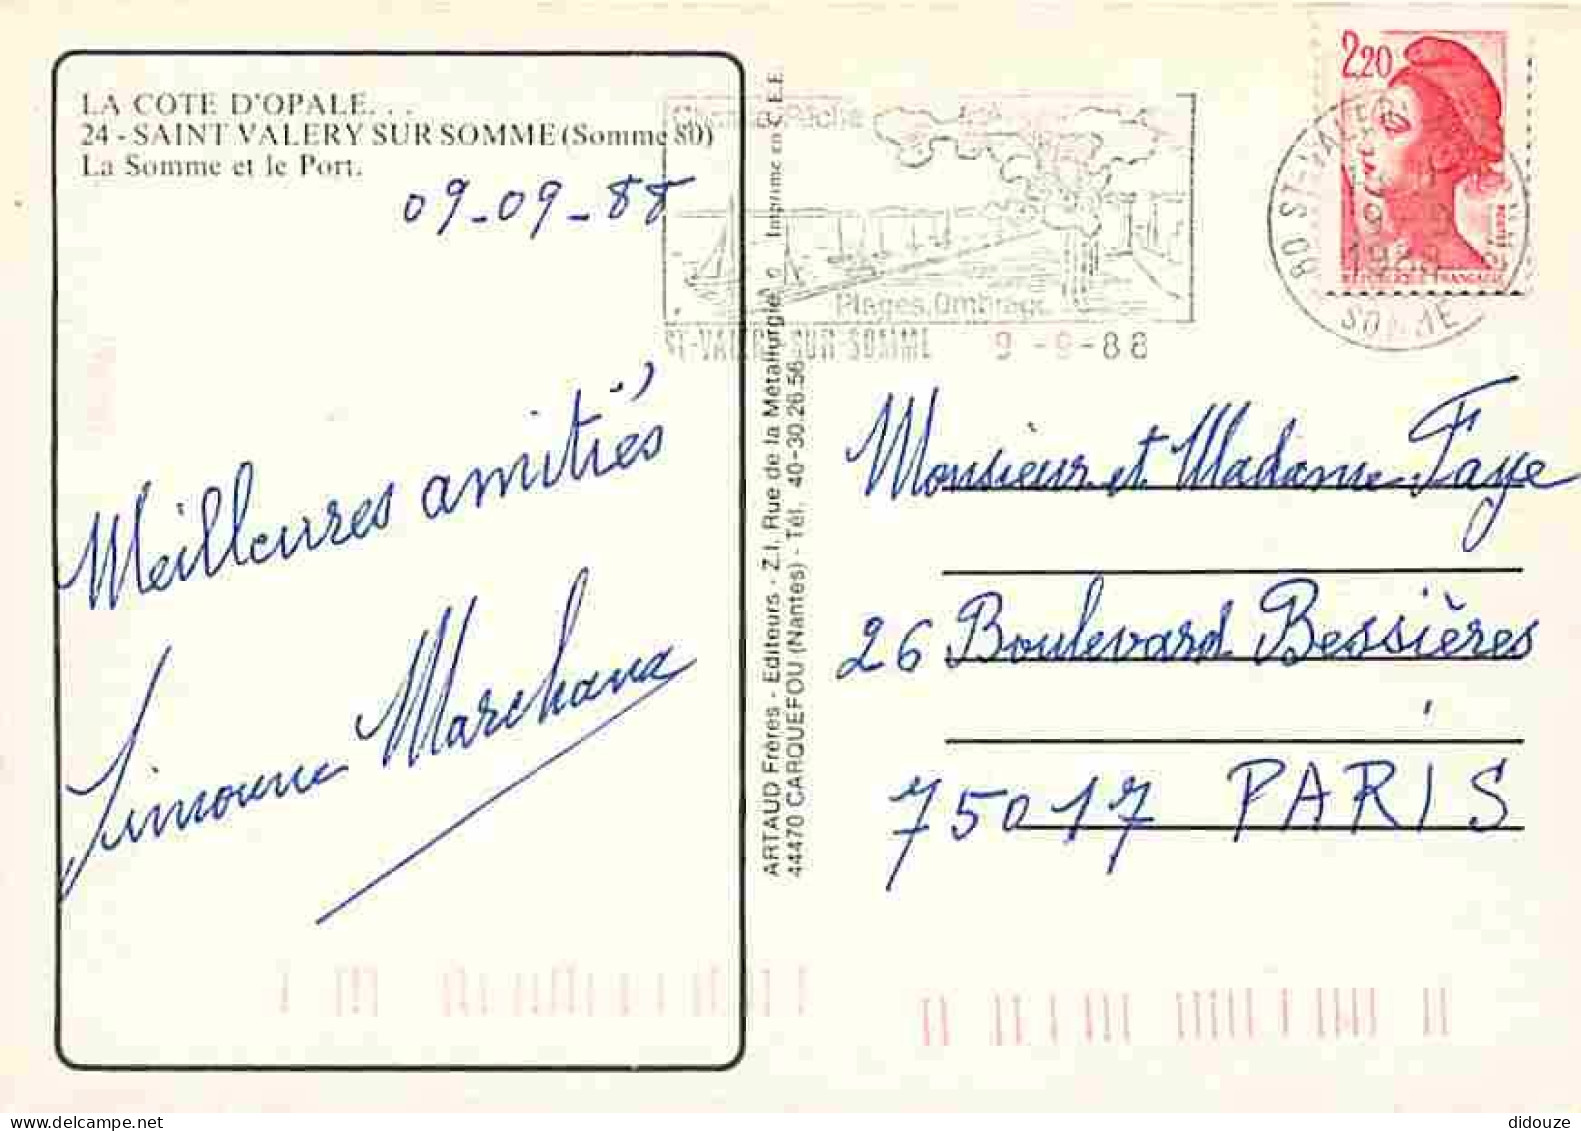 LA COTE D'OPALE. . .
24 - SAINT VALERY SUR SOMME (Somme 80)
La Somme et le Port.
09-09-88
Meilleures amitiés
Simonne Marchand
ARTAUD Frères - Editeurs - Z.I. Rue de la Métallurgie
44470 CARQUEFOU (Nantes) - Tél. 40-30.26.56
Imprimé en C.E.E.
Chasse, Pêche
Plages, Ombrage
ST-VALERY-SUR-SOMME 9-9-88
2,20
80 ST-VALERY
9-9
1988
SOMME
Monsieur et Madame Faye
26 Boulevard Bessières
75017 PARIS
didouze